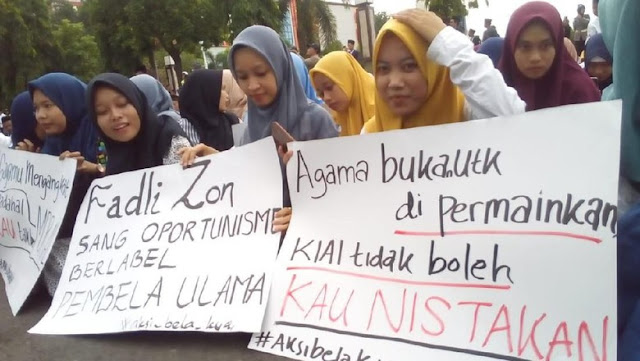 KAU
Fadli Zon
SANG OPORTUNISME
BERLABEL
PEMBELA ULAMA
#aksi_bela_kya
Agama bukan utk
di permainkan,
KIAI tidak boleh
KAU NISTAKAN
#AKSIbelak